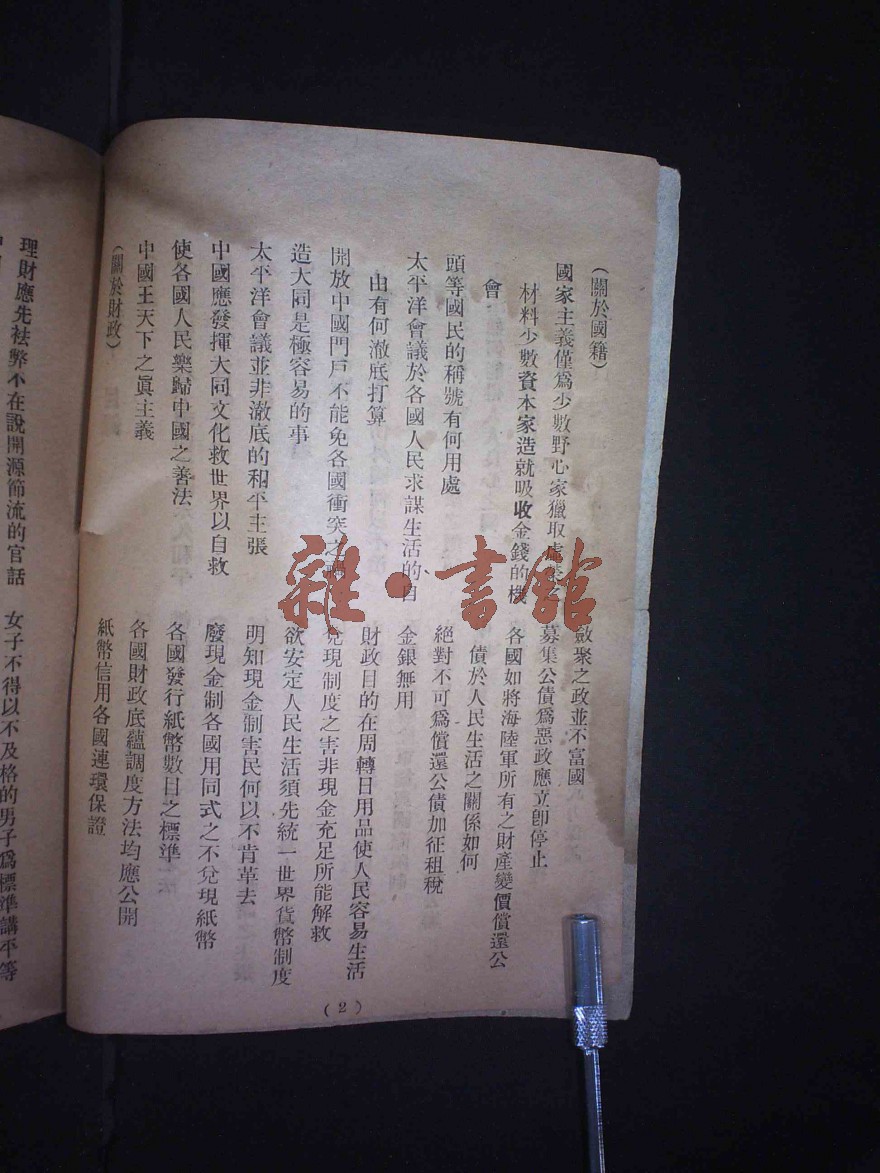 (關於國籍)
國家主義僅爲少數野心家獵取虛
材料少數資本家造就吸收金錢的機
會
頭等國民的稱號有何用處
太平洋會議於各國人民求謀生活的自
由有何澈底打算
開放中國門戶不能免各國衝突之禍
造大同是極容易的事
太平洋會議並非澈底的和平主張
中國應發揮大同文化救世界以自救
使各國人民樂歸中國之善法
中國王天下之眞主義
(關於財政)
斂聚之政並不富國
募集公債爲惡政應立卽停止
各國如將海陸軍所有之財產變價償還公
債於人民生活之關係如何
絕對不可爲償還公債加征租稅
金銀無用
財政目的在周轉日用品使人民容易生活
兌現制度之害非現金充足所能解救
欲安定人民生活須先統一世界貨幣制度
明知現金制害民何以不肯革去
廢現金制各國用同式之不兌現紙幣
各國發行紙幣數目之標準
各國財政底蘊調度方法均應公開
紙幣信用各國連環保證
(2)
理財應先祛弊不在說開源節流的官話
女子不得以不及格的男子爲標準講平等
雜·書館